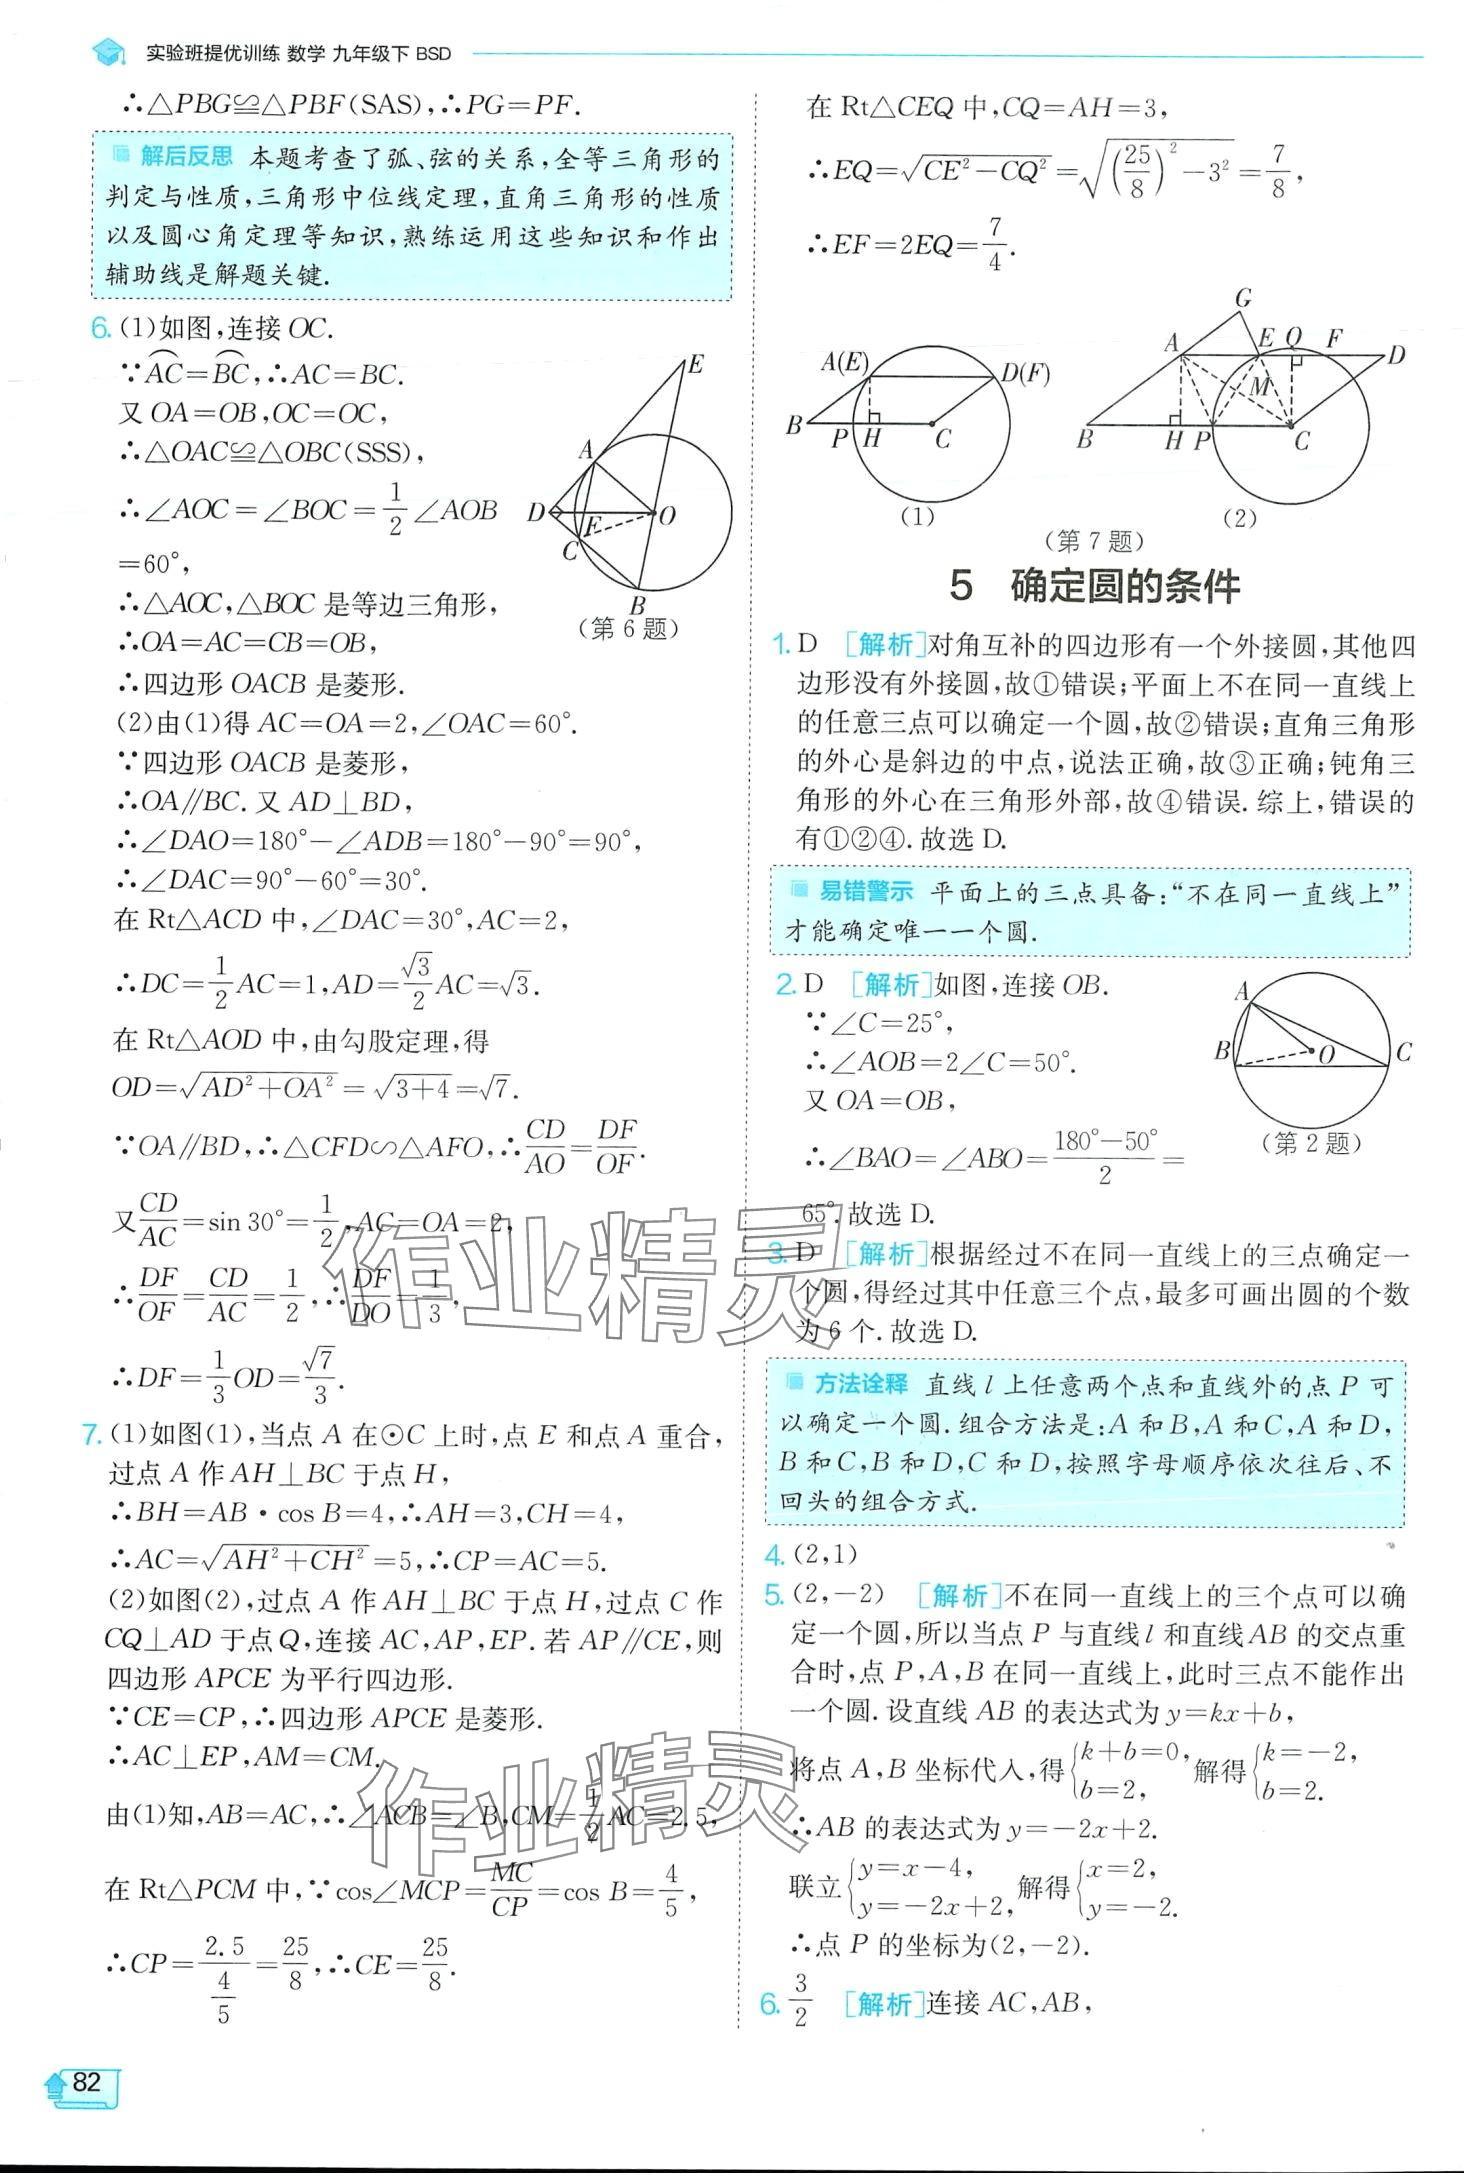 实验班提优训练 数学 九年级下 BSD
∴△PBG≌△PBF(SAS),∴PG=PF.
解后反思 本题考查了弧、弦的关系,全等三角形的
判定与性质,三角形中位线定理,直角三角形的性质
以及圆心角定理等知识,熟练运用这些知识和作出
辅助线是解题关键.
6. (1)如图,连接 OC.
∵⌒AC=⌒BC,∴AC=BC.
又 OA=OB,OC=OC,
∴△OAC≌△OBC(SSS),
∴∠AOC=∠BOC=1/2∠AOB
=60°,
∴△AOC,△BOC 是等边三角形,
∴OA=AC=CB=OB,
∴四边形 OACB 是菱形.
E
A
D
F
O
C
B
(第 6 题)
(2)由(1)得 AC=OA=2,∠OAC=60°.
∵四边形 OACB 是菱形,
∴OA∥BC.又 AD⊥BD,
∴∠DAO=180°-∠ADB=180°-90°=90°,
∴∠DAC=90°-60°=30°.
在 Rt△ACD 中,∠DAC=30°,AC=2,
∴DC=1/2 AC=1,AD=√3/2 AC=√3.
在 Rt△AOD 中,由勾股定理,得
OD=√(AD²+OA²)=√(3+4)=√7.
∵OA∥BD,∴△CFD∽△AFO,∴CD/AO=DF/OF.
又CD/AC=sin 30°=1/2,AC=OA=2,
∴DF/OF=CD/AC=1/2,∴DF/DO=1/3,
∴DF=1/3 OD=√7/3.
7. (1)如图(1),当点 A 在⊙C 上时,点 E 和点 A 重合,
过点 A 作 AH⊥BC 于点 H,
∴BH=AB·cos B=4,∴AH=3,CH=4,
∴AC=√(AH²+CH²)=5,∴CP=AC=5.
(2)如图(2),过点 A 作 AH⊥BC 于点 H,过点 C 作
CQ⊥AD 于点 Q,连接 AC,AP,EP.若 AP∥CE,则
四边形 APCE 为平行四边形.
∵CE=CP,∴四边形 APCE 是菱形.
∴AC⊥EP,AM=CM.
由(1)知,AB=AC,∴∠ACB=∠B,CM=1/2 AC=2.5,
在 Rt△PCM 中,∵cos∠MCP=MC/CP=cos B=4/5,
∴CP=2.5/(4/5)=25/8,∴CE=25/8.
在 Rt△CEQ 中,CQ=AH=3,
∴EQ=√(CE²-CQ²)=√((25/8)²-3²)=7/8,
∴EF=2EQ=7/4.
A(E)
D(F)
B
P
H
C
(1)
G
A
E
Q
F
D
M
B
H
P
C
(2)
(第 7 题)
5 确定圆的条件
1. D [解析]对角互补的四边形有一个外接圆,其他四
边形没有外接圆,故①错误;平面上不在同一直线上
的任意三点可以确定一个圆,故②错误;直角三角形
的外心是斜边的中点,说法正确,故③正确;钝角三
角形的外心在三角形外部,故④错误.综上,错误的
有①②④.故选 D.
易错警示 平面上的三点具备:“不在同一直线上”
才能确定唯一一个圆.
2. D [解析]如图,连接 OB.
∵∠C=25°,
∴∠AOB=2∠C=50°.
又 OA=OB,
∴∠BAO=∠ABO=(180°-50°)/2=
65°.故选 D.
A
B
O
C
(第 2 题)
3. D [解析]根据经过不在同一直线上的三点确定一
个圆,得经过其中任意三个点,最多可画出圆的个数
为 6 个.故选 D.
方法诠释 直线 l 上任意两个点和直线外的点 P 可
以确定一个圆.组合方法是:A 和 B,A 和 C,A 和 D,
B 和 C,B 和 D,C 和 D,按照字母顺序依次往后、不
回头的组合方式.
4. (2,1)
5. (2,-2) [解析]不在同一直线上的三个点可以确
定一个圆,所以当点 P 与直线 l 和直线 AB 的交点重
合时,点 P,A,B 在同一直线上,此时三点不能作出
一个圆.设直线 AB 的表达式为 y=kx+b,
将点 A,B 坐标代入,得{k+b=0, b=2, 解得{k=-2, b=2.
∴AB 的表达式为 y=-2x+2.
联立{y=x-4, y=-2x+2, 解得{x=2, y=-2.
∴点 P 的坐标为(2,-2).
6. 3/2 [解析]连接 AC,AB,
82
作业精灵
作业精灵